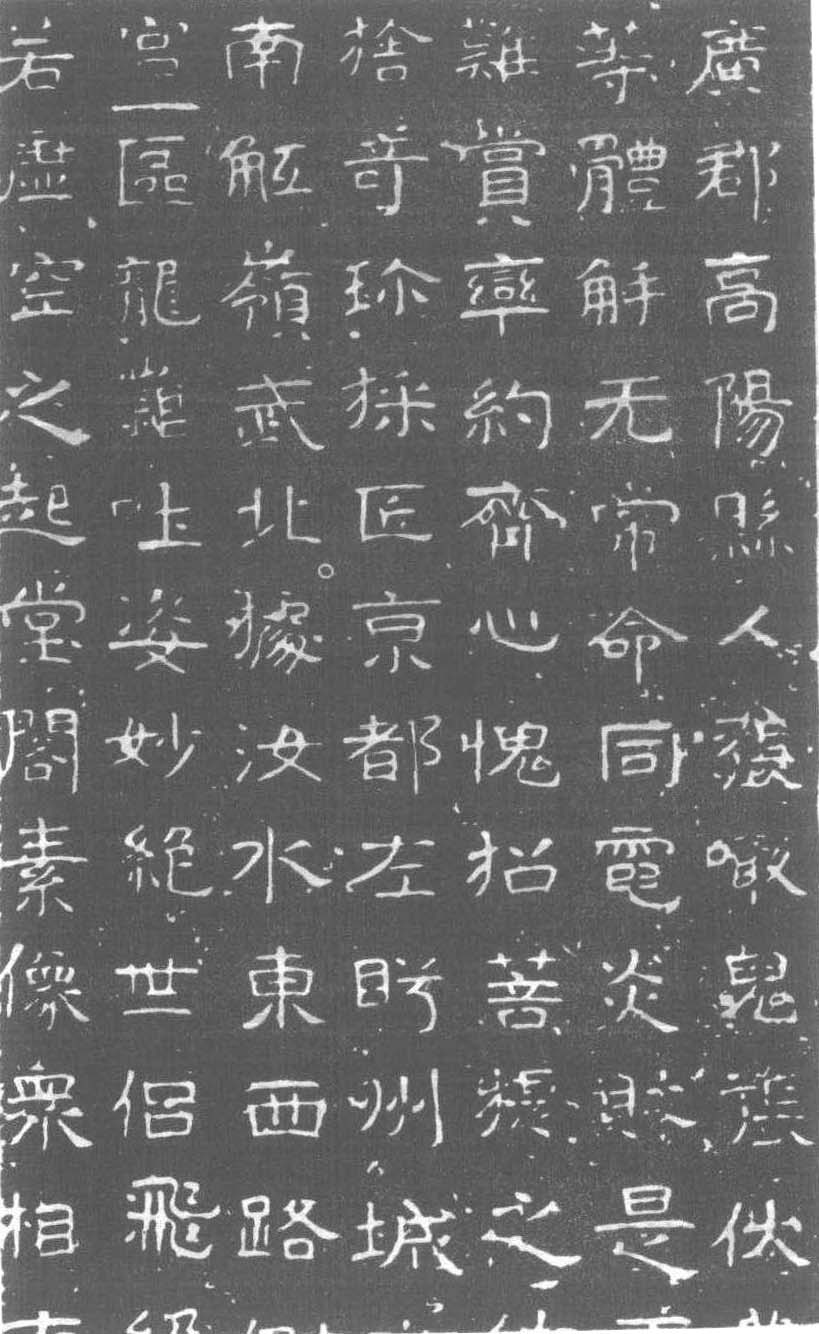 廣郡高陽縣人張噉鬼䕶伏
等體解无常命同電炎財是
難賞率約齊心愧招菩提之
捨奇珎採匠京都左眄州城
南觚嶺武北據汝水東西路
宮一區龍龕吐姿妙絕世侣飛
若虛空之起堂閣素像眾相